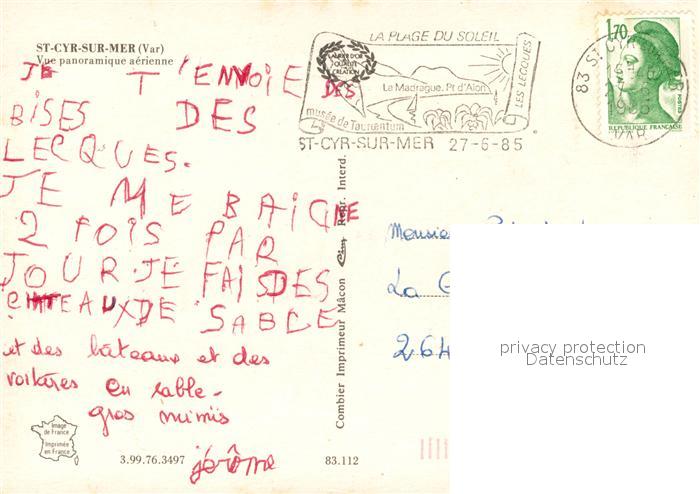 ST-CYR-SUR-MER (Var)
Vue panoramique aérienne
JE T'ENVOIE DES
BISES DES
LECQUES.
JE ME BAIGNE
2 FOIS PAR
JOUR. JE FAIS DES
CHATEAUX DE SABLE
et des bâteaux et des
voitures en sable.
gros mimis
jérôme
Image
de France
Imprimée
en France
3.99.76.3497
83.112
Combier Imprimeur Mâcon Cim Repr. Interd.
LA PLAGE DU SOLEIL
LES LECQUES
La Madrague. Pt d'Alon
musée de Tauroentum
ST-CYR-SUR-MER 27-6-85
83 ST CYR
VAR
1,70
POSTES
REPUBLIQUE FRANÇAISE
Monsieur
La
264
privacy protection
Datenschutz